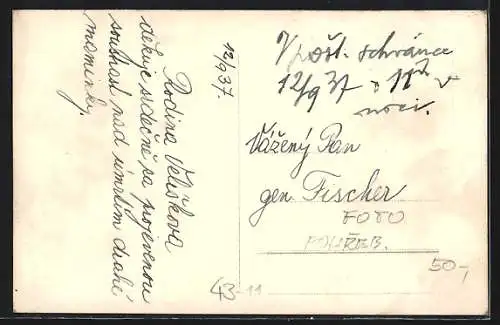 12/9 37.
Rodina Veliškova
děkuje srdečně za projevenou
soustrast nad úmrtím drahé
maminky.
V pošt. schránce
12/9 37 v 11h v
noci.
Vážený Pan
gen. Fischer
FOTO
POHŘEB.
50,-
43-11